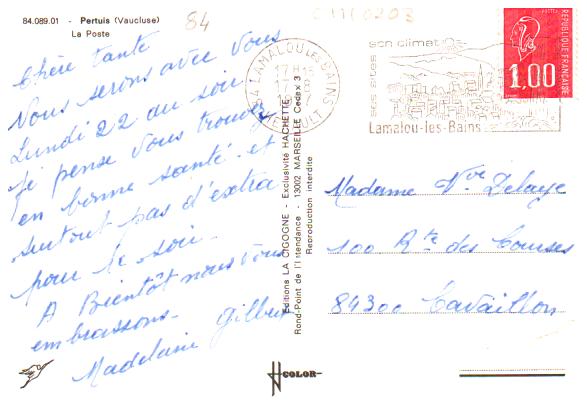 84.089.01 - Pertuis (Vaucluse)
La Poste
84
Chère tante
Nous serons avec vous
Lundi 22 au soir
Je pense vous trouver
en bonne santé. et
surtout pas d'extra
pour le soir.
A Bientôt nous vous
embrassons.
Madelaine Gilbert
Editions LA CIGOGNE - Exclusivité HACHETTE
Rond-Point de l'Intendance - 13002 MARSEILLE Cedex 3
Reproduction interdite
COLOR
LAMALOU les BAINS
17 H
HERAULT
son climat
ses sites
Lamalou-les-Bains
POSTES
1,00
REPUBLIQUE FRANCAISE
Madame Vve Delaye
100 Rte des Courses
84300 Cavaillon